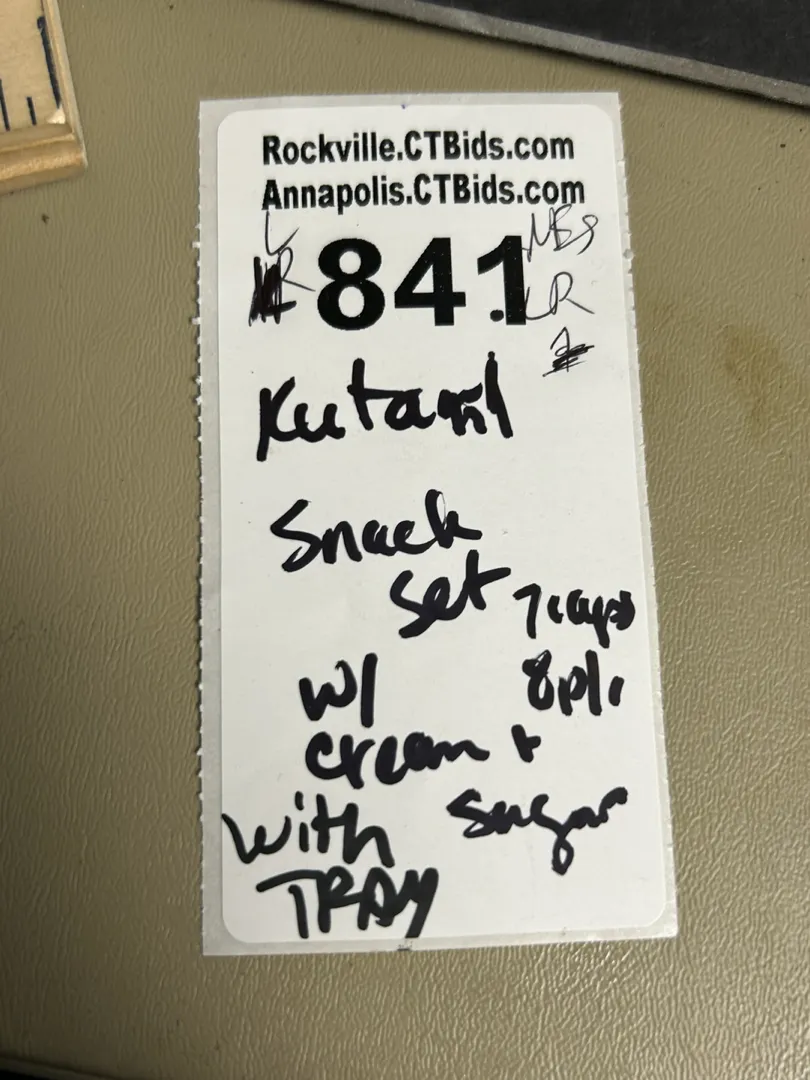 Rockville.CTBids.com
Annapolis.CTBids.com
841
LR
Kutani
Snack
Set
7 cups
w/
8 pl.
cream +
sugar
with
TRAY